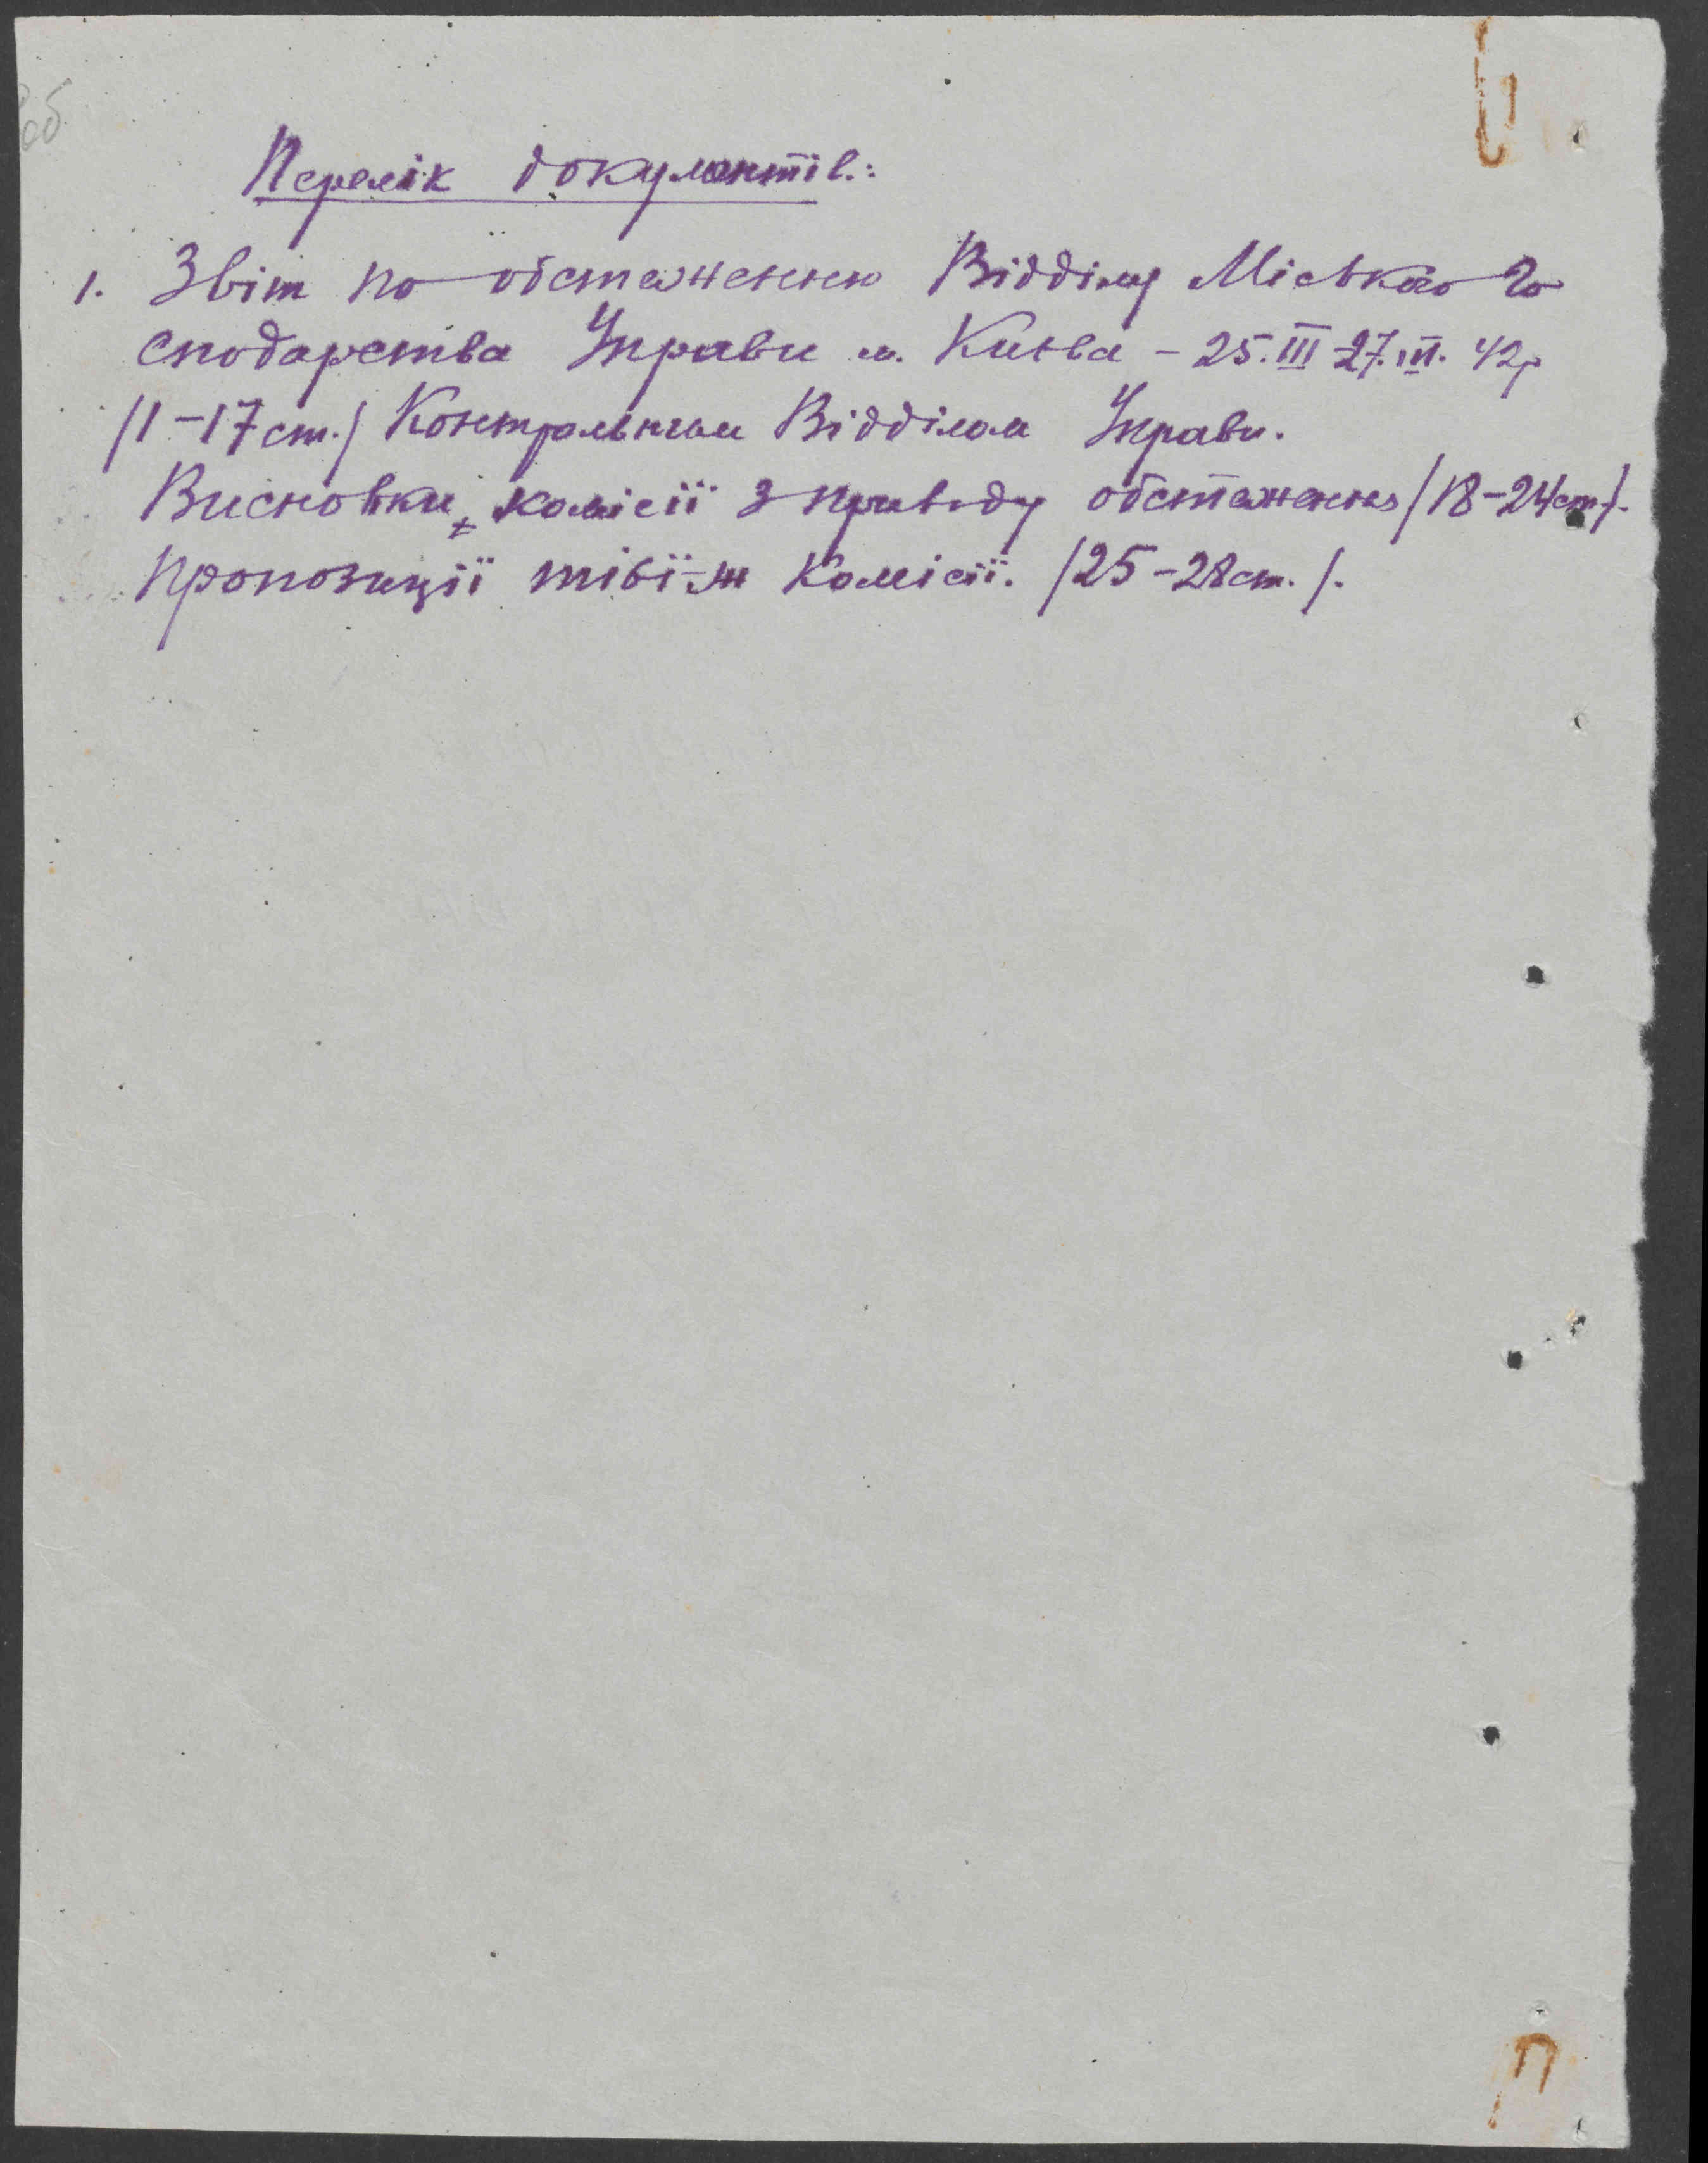 об
Перелік документів.:
1. Звіт по обстеженню Відділу Міськго Го
сподарства Управи м. Києва – 25.III-27.III. 42р
/1-17 ст./ Контрольним Відділом Управи.
Висновки комісії з приводу обстеження /18-24 ст/.
пропозиції тієї-ж Комісії. /25-28 ст. /.